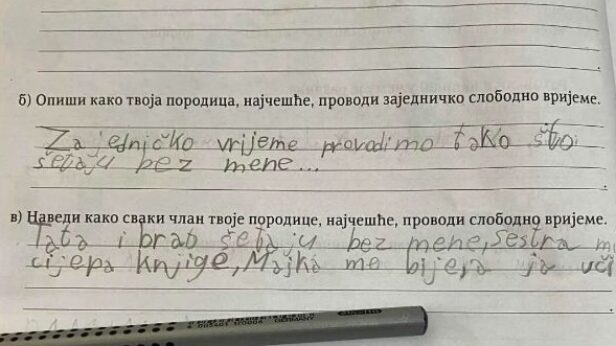 б) Опиши како твоја породица, најчешће, проводи заједничко слободно вријеме.
Zajedničko vrijeme provodimo tako što
šetaju bez mene...
в) Наведи како сваки члан твоје породице, најчешће, проводи слободно вријеме.
Tata i brat šetaju bez mene, sestra
cijepa knjige, Majka me bije, a ja uči